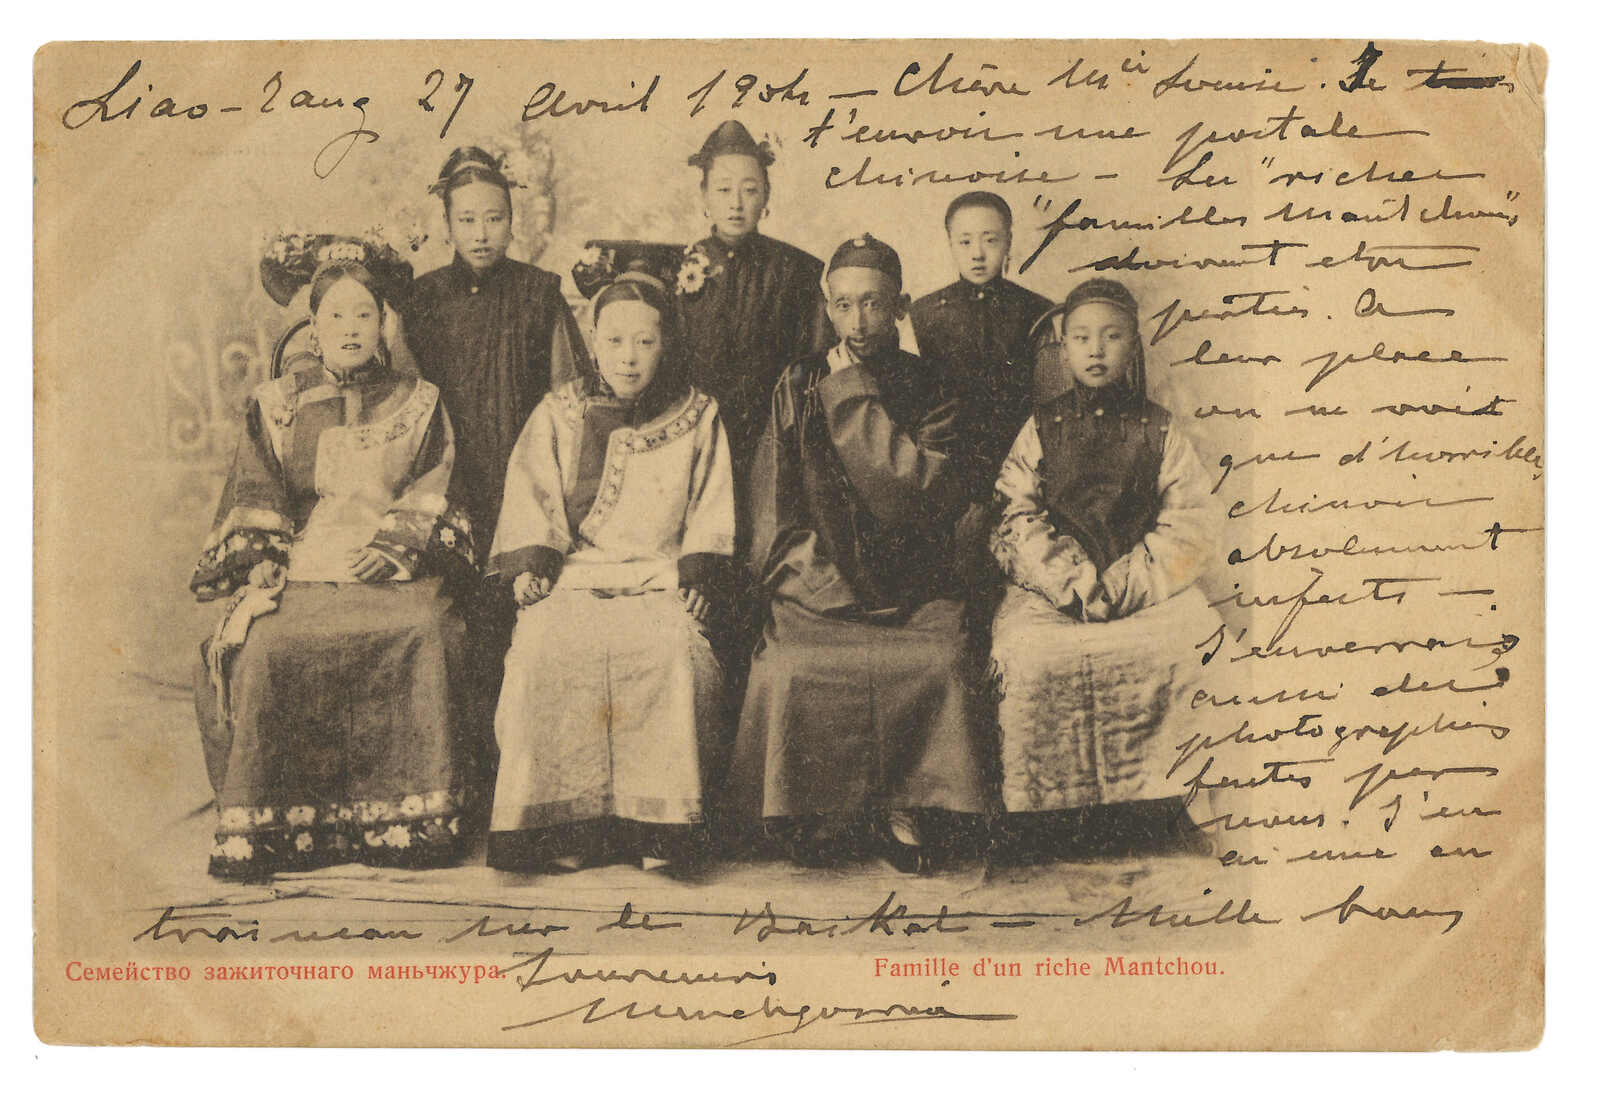 Liao-Yang 27 Avril 1904 — Chère Mlle Louise. Je
t'envoie une postale
chinoise — Les "riches
"familles mantchoues"
doivent être
parties. A
leur place
on ne voit
que d'horribles
chinois
absolument
infects —
J'enverrais
aussi des
photographies
faites par
nous. J'en
ai une en
traineau sur le Baikal — Mille bons
Семейство зажиточнаго маньчжура. Souvenirs Famille d'un riche Mantchou.